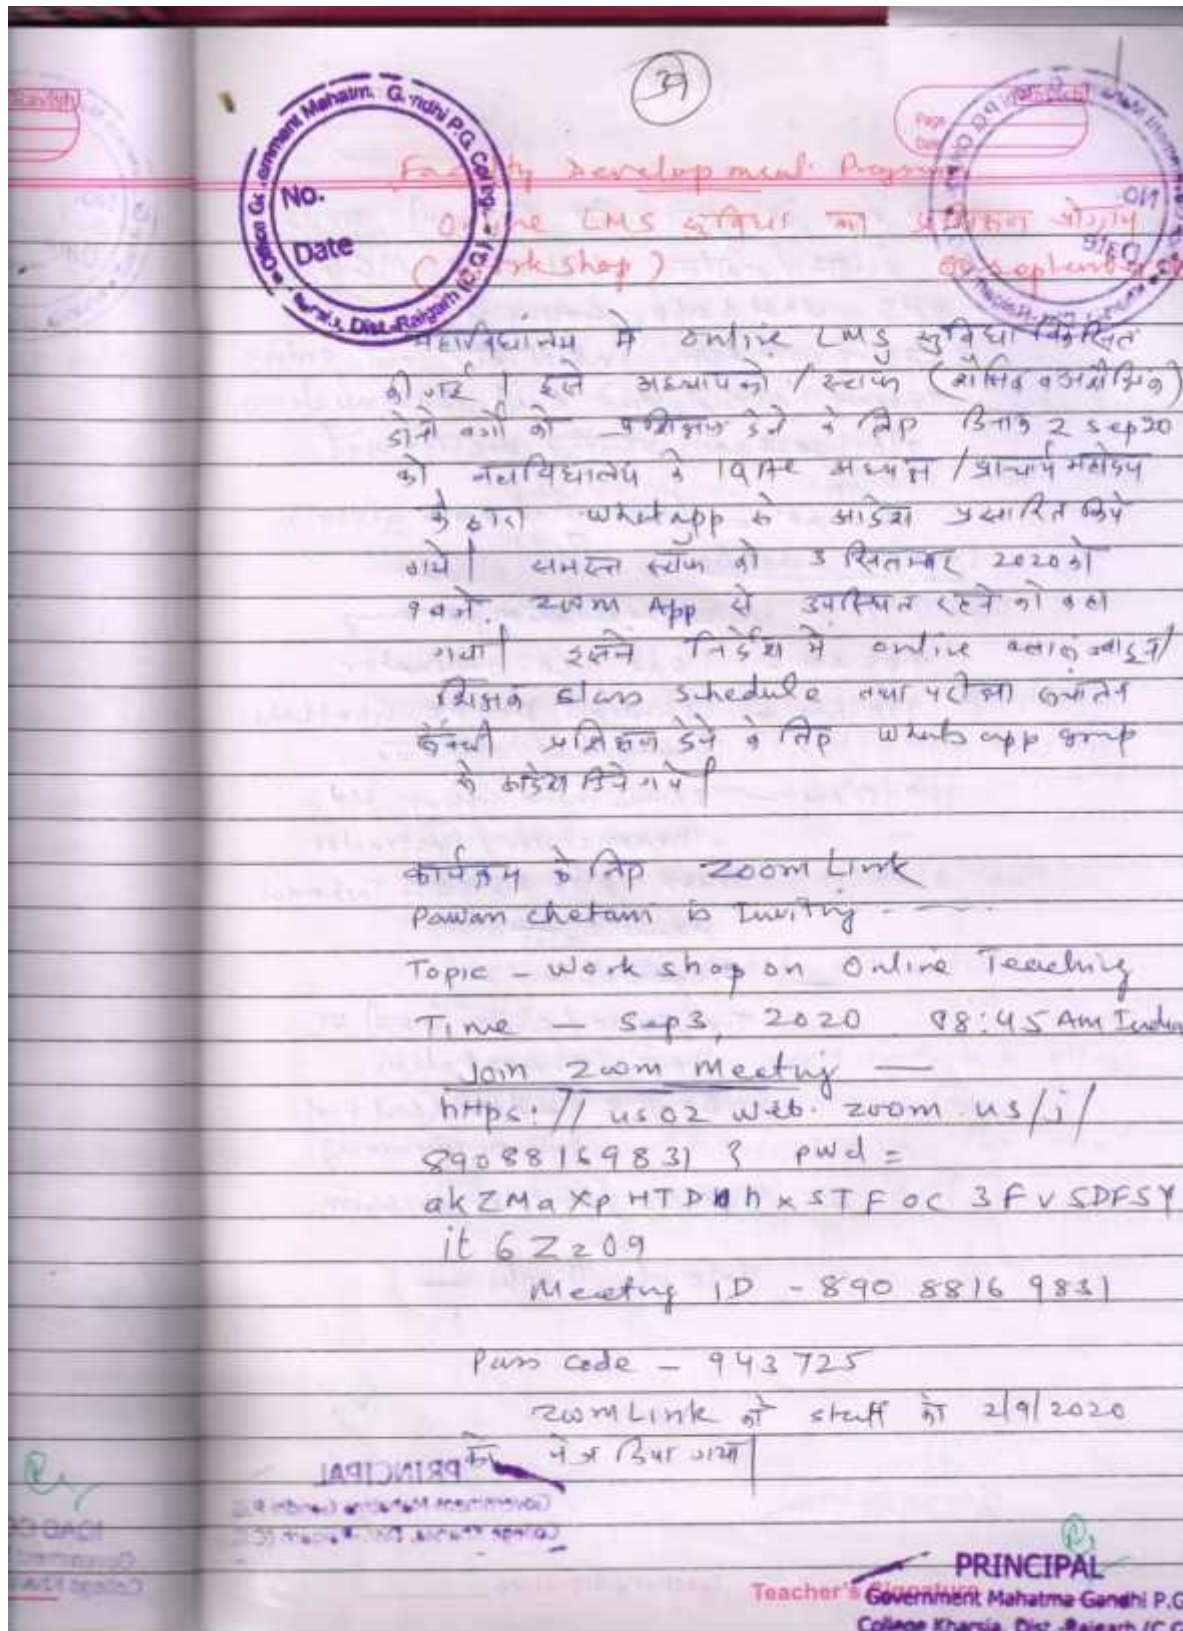 39
Office Government Mahatma Gandhi P.G. College
Kharsia, Dist.-Raigarh (C.G.)
No.
Date
Page
Date
Faculty Development Program
Online LMS सुविधा का प्रशिक्षण प्रोग्राम
(Workshop) September
महाविद्यालय में online LMS सुविधा विकसित
की गई। इसे अध्यापको / स्टाफ (शैक्षिक व अशैक्षिक)
दोनो वर्गो को प्रशिक्षण देने के लिए दिनांक 2 Sep 20
को महाविद्यालय के IQAC अध्यक्ष / प्राचार्य महोदय
के द्वारा Whatapp से आदेश प्रसारित किये
गये। समस्त स्टाफ को 3 सितम्बर 2020 को
9 बजे. Zoom App से उपस्थित रहने को कहा
गया। इसने निर्देश में online क्लास ज्वाइन/
शिक्षण class schedule तथा परीक्षा संचालन
संबंधी प्रशिक्षण देने के लिए Whats app group
से आदेश दिये गये।
कार्यक्रम के लिए Zoom Link
Pawan chetani is Inviting - —.
Topic - Work shop on Online Teaching
Time — Sep 3, 2020 08:45 Am India
Join Zoom Meeting —
https://us02 web. zoom.us/j/
89088169831 ? pwd =
akZMaXpHTDhxSTFoc3FvSDFSY
it 6Zz09
Meeting ID - 890 8816 9831
Pass code - 943725
Zoom Link को staff को 2/9/2020
को भेज दिया गया।
PRINCIPAL
Teacher's Signature
Government Mahatma Gandhi P.G
College Kharsia, Dist.-Raigarh (C.G